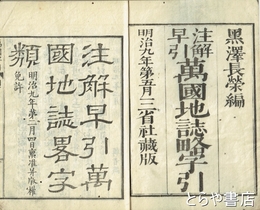 黒澤長榮編
注解
早引
萬國地誌畧字引
明治九年第五月三省社藏版
注解早引萬
國地誌畧字
類
明治九年第二月四日稟准并版權
免許
とらや書店